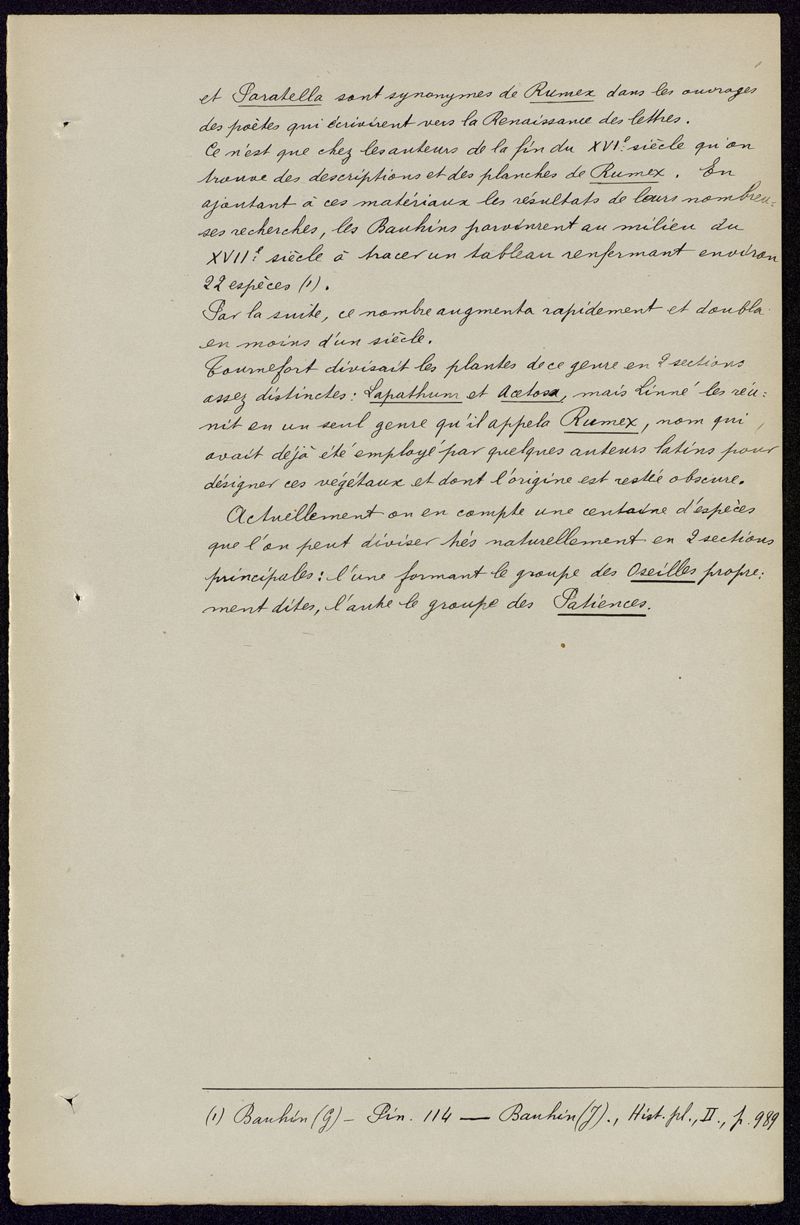 et Paratella sont synonymes de Rumex dans les ouvrages
des poètes qui écrivirent vers la Renaissance des lettres.
Ce n'est que chez les auteurs de la fin du XVIe siècle qu'on
trouve des descriptions et des planches de Rumex. En
ajoutant à ces matériaux les résultats de leurs nombreu=
ses recherches, les Bauhins parvinrent au milieu du
XVIIe siècle à tracer un tableau renfermant environ
22 espèces (1).
Par la suite, ce nombre augmenta rapidement et doubla
en moins d'un siècle.
Tournefort divisait les plantes de ce genre en 2 sections
assez distinctes: Lapathum et Acetosa, mais Linné les réu=
nit en un seul genre qu'il appela Rumex, nom qui
avait déjà été employé par quelques auteurs latins pour
désigner ces végétaux et dont l'origine est restée obscure.
Actuellement on en compte une centaine d'espèces
que l'on peut diviser très naturellement en 2 sections
principales: l'une formant le groupe des Oseilles propre=
ment dites, l'autre le groupe des Patiences.
(1) Bauhin (G) - Pin. 114 — Bauhin (J)., Hist. pl., II., p. 989